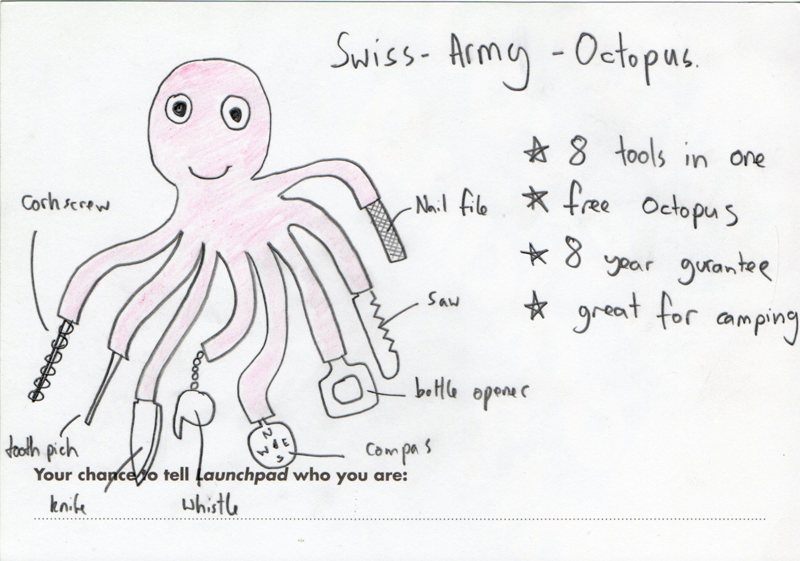 Swiss-Army-Octopus.
☆ 8 tools in one
☆ free Octopus
☆ 8 year gurantee
☆ great for camping
Corkscrew
Nail file
saw
bottle opener
compas
N
W E
S
tooth pick
knife
whistle
Your chance to tell Launchpad who you are: